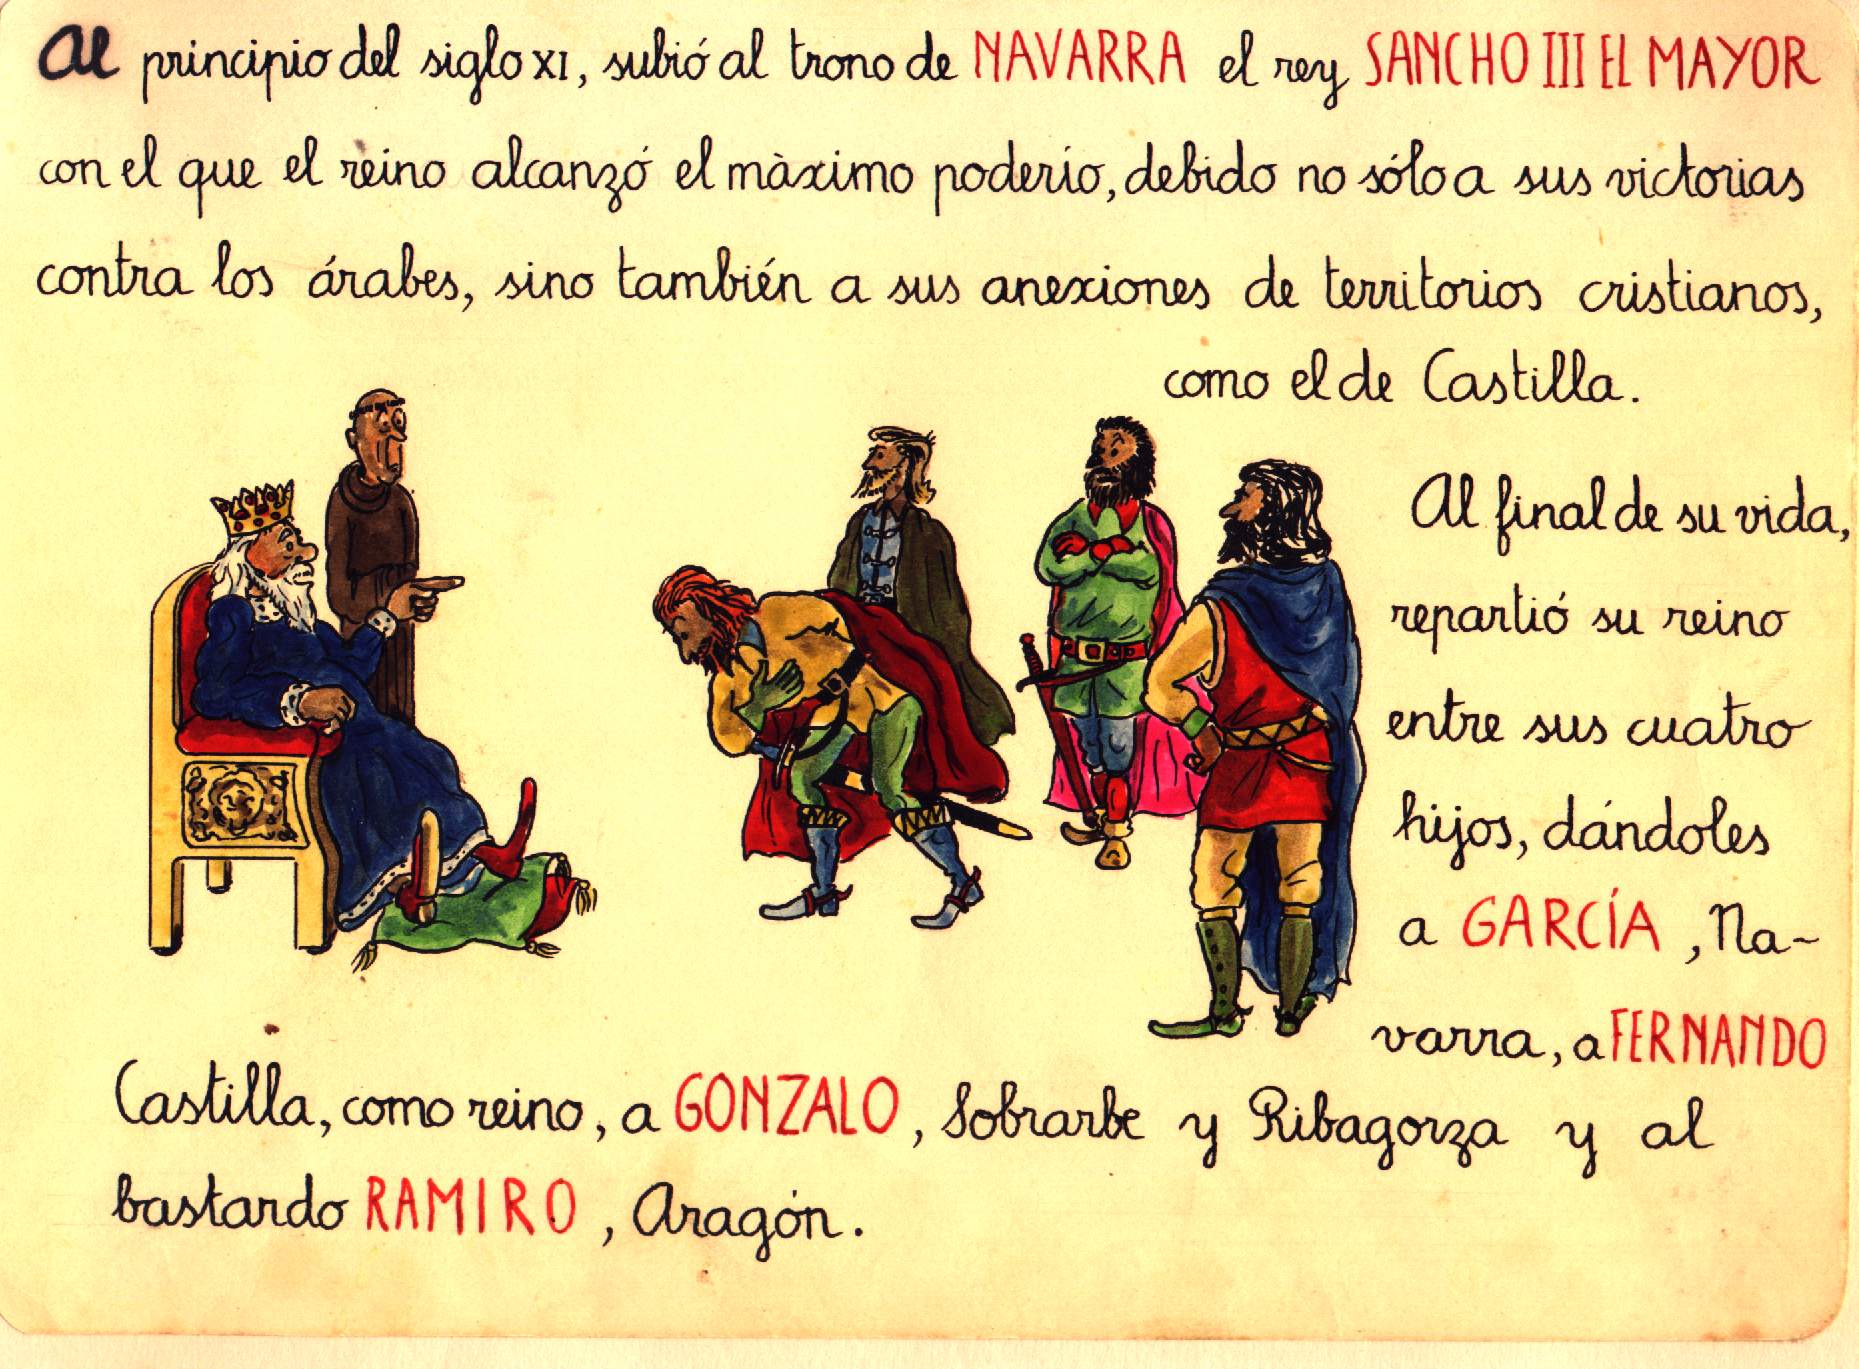 Al principio del siglo XI, subió al trono de NAVARRA el rey SANCHO III EL MAYOR
con el que el reino alcanzó el màximo poderío, debido no sólo a sus victorias
contra los árabes, sino también a sus anexiones de territorios cristianos,
como el de Castilla.
Al final de su vida,
repartió su reino
entre sus cuatro
hijos, dándoles
a GARCÍA, Na-
varra, a FERNANDO
Castilla, como reino, a GONZALO, Sobrarbe y Ribagorza y al
bastardo RAMIRO, Aragón.